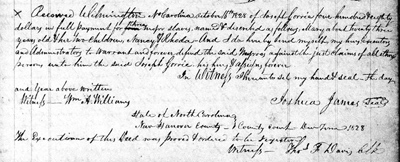 x Received Wilmington N Carolina October 18th 1828 of Joseph Ferris five hundred & eighty
dollars in full payment for three negro slaves, named & described as follows, Mary about twenty three
years old & her two children, Nancy & Rhoda. And I do hereby bind myself, my heirs, executors
and Administrators to warrant and forever defend the said Negroes against the just claims of all other
persons unto him the said Joseph Ferris his heirs & assigns forever
In Witness I hereunto set my hand & seal the day
and Year above written
Witness Wm. A. Williams
Joshua James Seal
State of North Carolina
New Hanover County County Court Term 1828
The Execution of this Deed was proved & ordered to be Registered
Witness Thos. F. Davis Clk